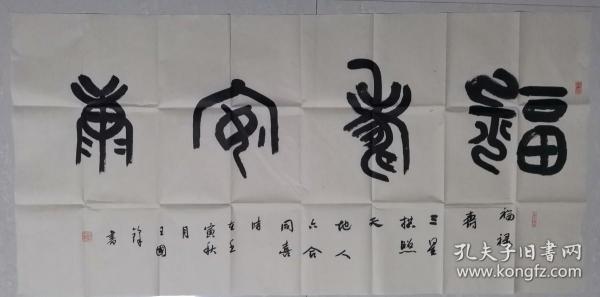 福寿安康
福禄
寿
三星
拱照
天
地人
六合
同春
时
在壬
寅秋
月
王国
锋
书
孔夫子旧书网
www.kongfz.com